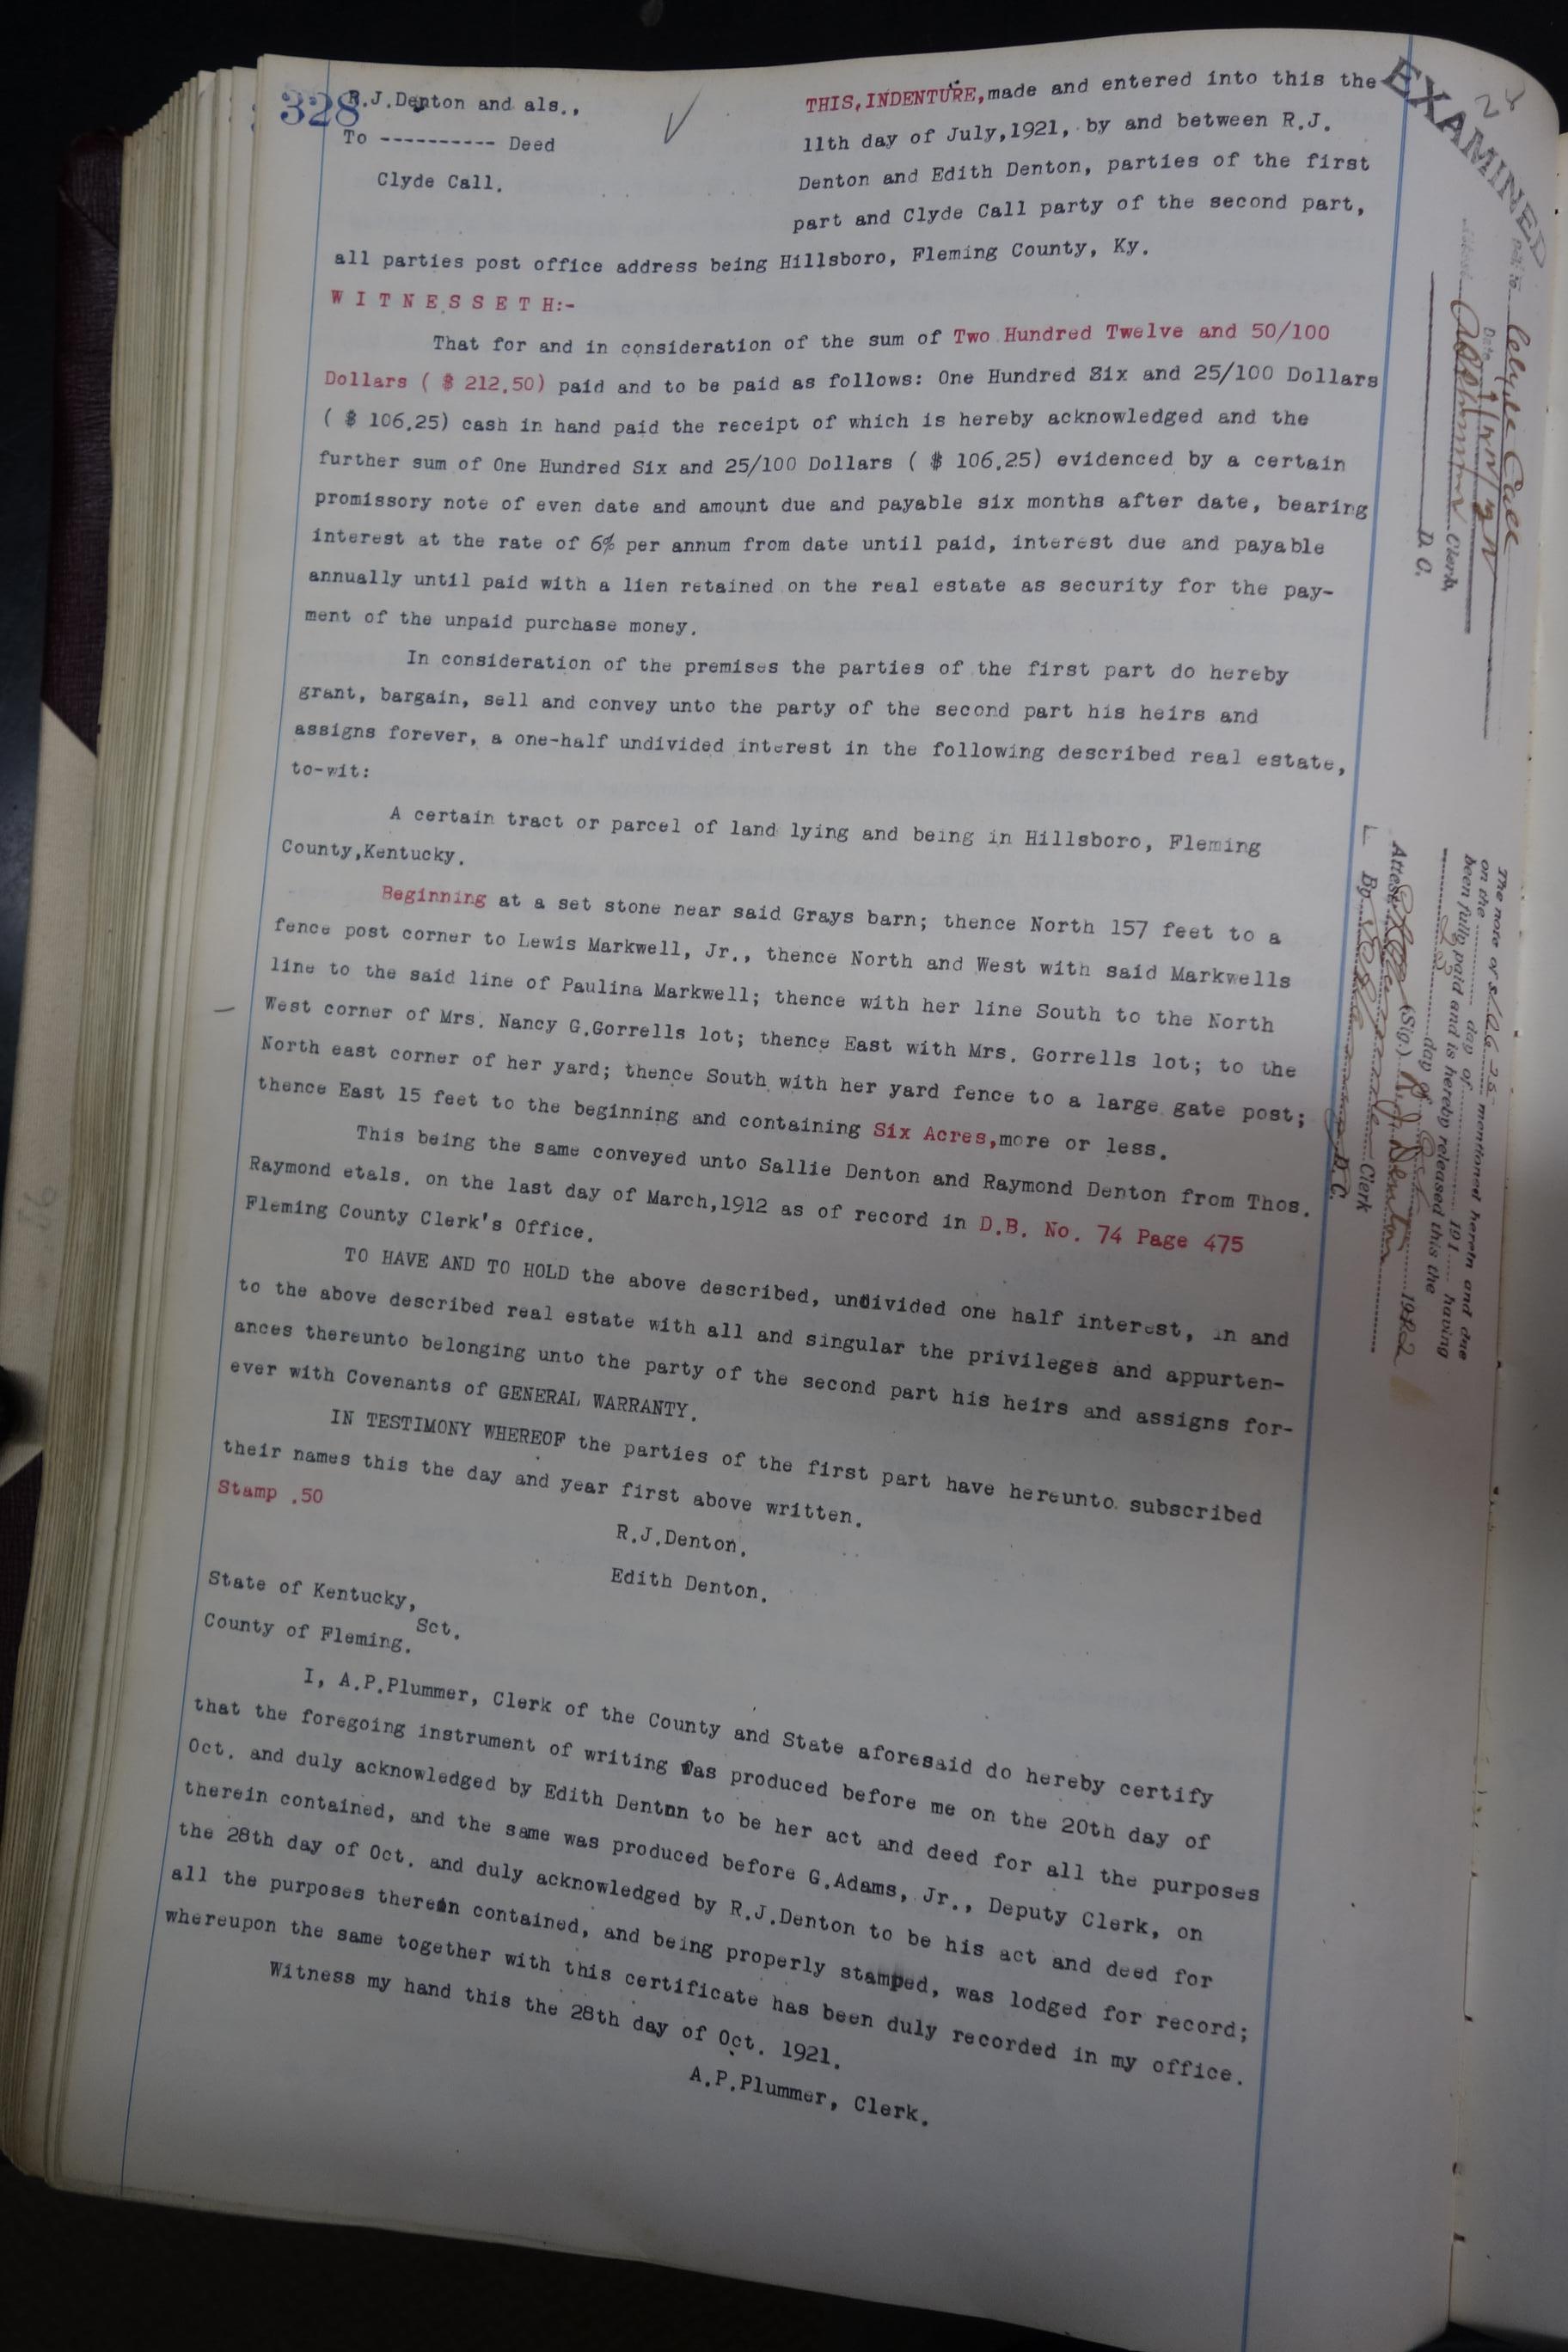 328
R.J.Denton and als.,
To ---------- Deed
Clyde Call.
THIS,INDENTURE,made and entered into this the
11th day of July,1921, by and between R.J.
Denton and Edith Denton, parties of the first
part and Clyde Call party of the second part,
all parties post office address being Hillsboro, Fleming County, Ky.
W I T N E S S E T H:-
That for and in consideration of the sum of Two Hundred Twelve and 50/100
Dollars ( $ 212.50) paid and to be paid as follows: One Hundred Six and 25/100 Dollars
( $ 106.25) cash in hand paid the receipt of which is hereby acknowledged and the
further sum of One Hundred Six and 25/100 Dollars ( $ 106.25) evidenced by a certain
promissory note of even date and amount due and payable six months after date, bearing
interest at the rate of 6% per annum from date until paid, interest due and payable
annually until paid with a lien retained on the real estate as security for the pay-
ment of the unpaid purchase money.
In consideration of the premises the parties of the first part do hereby
grant, bargain, sell and convey unto the party of the second part his heirs and
assigns forever, a one-half undivided interest in the following described real estate,
to-wit:
A certain tract or parcel of land lying and being in Hillsboro, Fleming
County,Kentucky.
Beginning at a set stone near said Grays barn; thence North 157 feet to a
fence post corner to Lewis Markwell, Jr., thence North and West with said Markwells
line to the said line of Paulina Markwell; thence with her line South to the North
West corner of Mrs. Nancy G.Gorrells lot; thence East with Mrs. Gorrells lot; to the
North east corner of her yard; thence South with her yard fence to a large gate post;
thence East 15 feet to the beginning and containing Six Acres,more or less.
This being the same conveyed unto Sallie Denton and Raymond Denton from Thos.
Raymond etals. on the last day of March,1912 as of record in D.B. No. 74 Page 475
Fleming County Clerk's Office.
TO HAVE AND TO HOLD the above described, undivided one half interest, in and
to the above described real estate with all and singular the privileges and appurten-
ances thereunto belonging unto the party of the second part his heirs and assigns for-
ever with Covenants of GENERAL WARRANTY.
IN TESTIMONY WHEREOF the parties of the first part have hereunto subscribed
their names this the day and year first above written.
Stamp .50
R.J.Denton.
Edith Denton.
State of Kentucky,
Sct.
County of Fleming.
I, A.P.Plummer, Clerk of the County and State aforesaid do hereby certify
that the foregoing instrument of writing was produced before me on the 20th day of
Oct. and duly acknowledged by Edith Denton to be her act and deed for all the purposes
therein contained, and the same was produced before G.Adams, Jr., Deputy Clerk, on
the 28th day of Oct. and duly acknowledged by R.J.Denton to be his act and deed for
all the purposes therein contained, and being properly stamped, was lodged for record;
whereupon the same together with this certificate has been duly recorded in my office.
Witness my hand this the 28th day of Oct. 1921.
A.P.Plummer, Clerk.
EXAMINED
Clyde Call
Date
Clerk,
D. C.
The note of $ 106.25 mentioned herein and due
on the day of 191 having
been fully paid and is hereby released this the
day of 1922
(Sig.) R.J. Denton
Attest Clerk
By D.C.